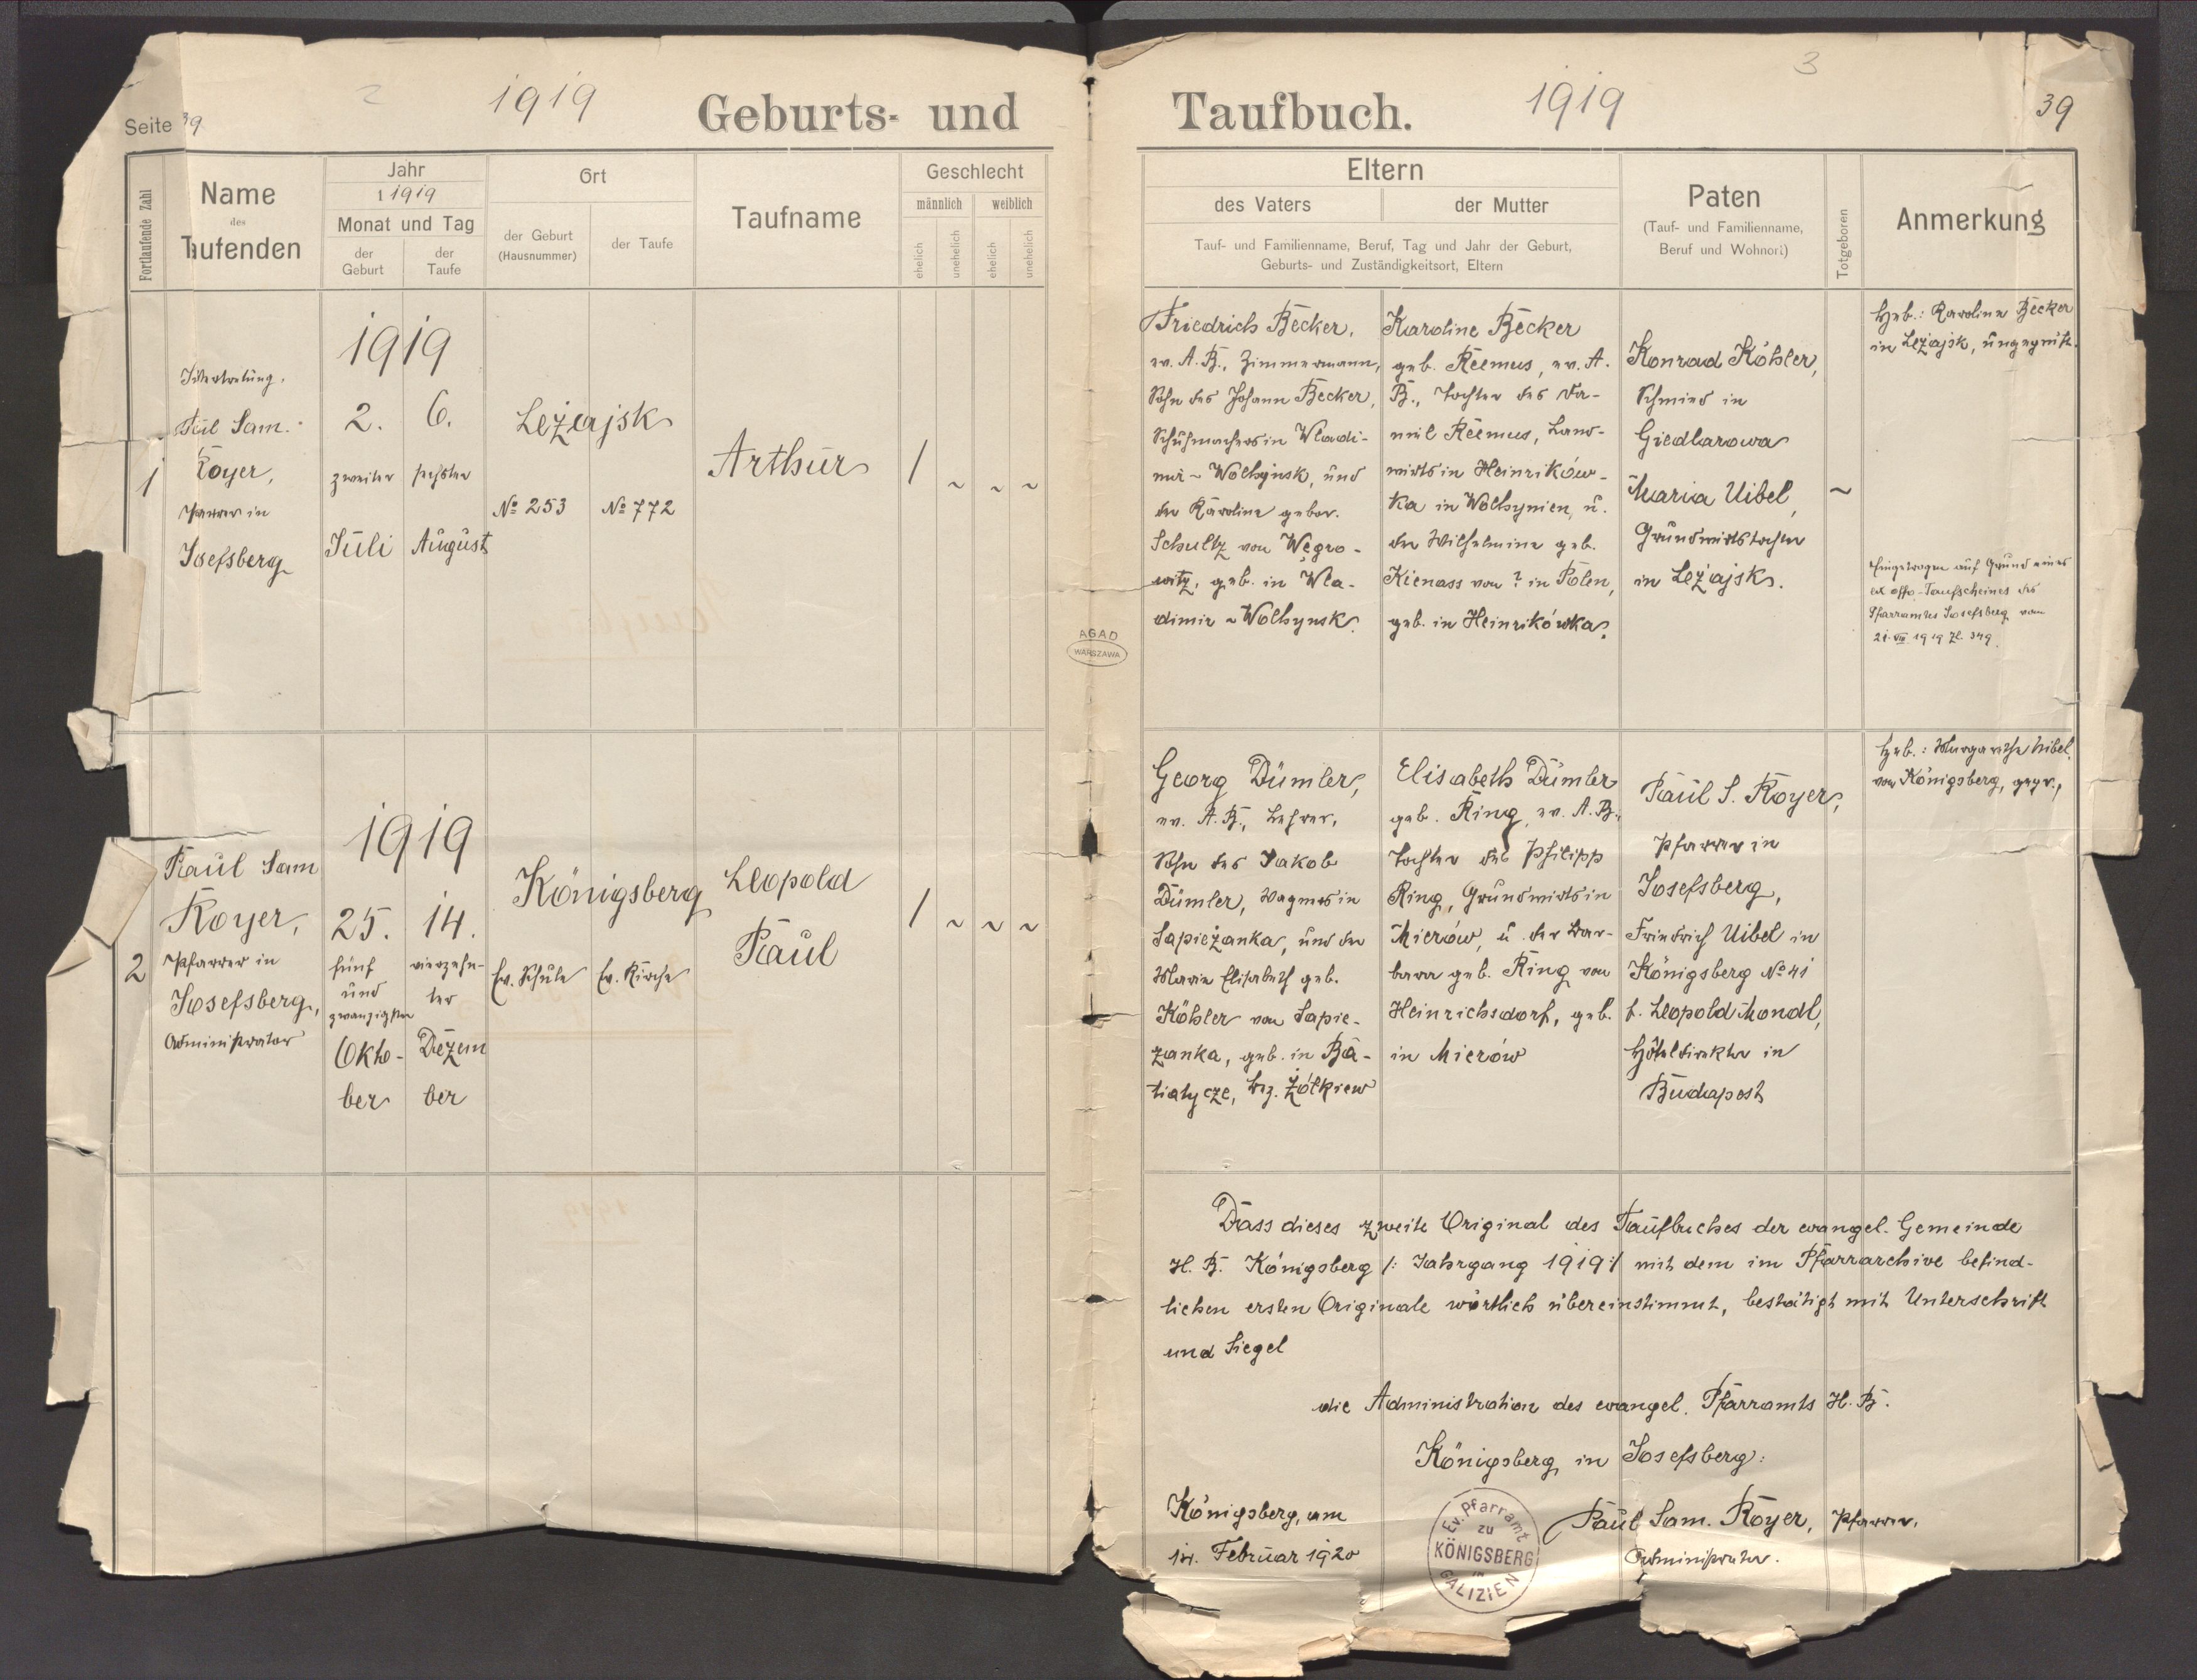 2
1919
Geburts- und
Seite 39
Fortlaufende Zahl
Name
des
Taufenden
Jahr
1 1919
Monat und Tag
der Geburt
der Taufe
Ort
der Geburt
(Hausnummer)
der Taufe
Taufname
Geschlecht
männlich
weiblich
ehelich
unehelich
ehelich
unehelich
1
Paul Sam.
Royer,
Pfarrer in
Josefsberg
1919
2. 6.
zweiter sechster
Juli August
Leżajsk
No 253 No 772
Arthur
/ ~ ~ ~
2
Paul Sam
Royer,
Pfarrer in
Josefsberg,
Administrator
1919
25. 14.
fünf vierzehn-
und ter
zwanzigster
Okto- Dezem
ber ber
Königsberg
Ev. Schule Ev. Kirche
Leopold
Paul
/ ~ ~ ~
3
Taufbuch.
1919
39
Eltern
des Vaters
der Mutter
Tauf- und Familienname, Beruf, Tag und Jahr der Geburt,
Geburts- und Zuständigkeitsort, Eltern
Paten
(Tauf- und Familienname,
Beruf und Wohnort)
Totgeboren
Anmerkung
Friedrich Becker,
ev. A. B., Zimmermann,
Sohn des Johann Becker,
Schuhmachers in Wladi-
mir-Wolhynsk, und
der Karoline gebor.
Schultz von Węgro-
witz, geb. in Wla-
dimir-Wolhynsk.
Karoline Becker
geb. Reemus, ev. A.
B., Tochter des Da-
niel Reemus, Land-
wirts in Heinrików-
ka in Wolhynien, u.
der Wilhelmine geb.
Kienass von ? in Polen,
geb. in Heinrikówka.
Konrad Köhler,
Schmied in
Giedlarowa
Maria Uibel,
Grundwirtstochter
in Leżajsk.
~
Heb.: Karoline Becker
in Leżajsk, ungeprüft.
Eingetragen auf Grund eines
ex offo-Taufscheines des
Pfarramtes Josefsberg vom
21. VIII 1919 Zl. 349.
AGAD
WARSZAWA
Georg Dümler,
ev. A. B., Lehrer,
Sohn des Jakob
Dümler, Wagners in
Sapieżanka, und der
Marie Elisabeth geb.
Köhler von Sapie-
żanka, geb. in Ba-
tiatycze, Bez. Żółkiew
Elisabeth Dümler
geb. Ring, ev. A. B.,
Tochter des Philipp
Ring, Grundwirts in
Mierów, u. der Bar-
bara geb. Ring von
Heinrichsdorf, geb.
in Mierów
Paul S. Royer,
Pfarrer in
Josefsberg,
Friedrich Uibel in
Königsberg No 41
f. Leopold Mondl,
Hôteldirektor in
Budapest
Heb.: Margarethe Uibel
von Königsberg, gepr.,
Dass dieses zweite Original des Taufbuches der evangel. Gemeinde
H. B. Königsberg /: Jahrgang 1919 :/ mit dem im Pfarrarchive befind-
lichen ersten Originale wörtlich übereinstimmt, bestätigt mit Unterschrift
und Siegel
die Administration des evangel. Pfarramts H. B.
Königsberg in Josefsberg:
Königsberg, am
14. Februar 1920
Ev. Pfarramt
zu
KÖNIGSBERG
in
GALIZIEN
Paul Sam. Royer, Pfarrer,
Administrator.